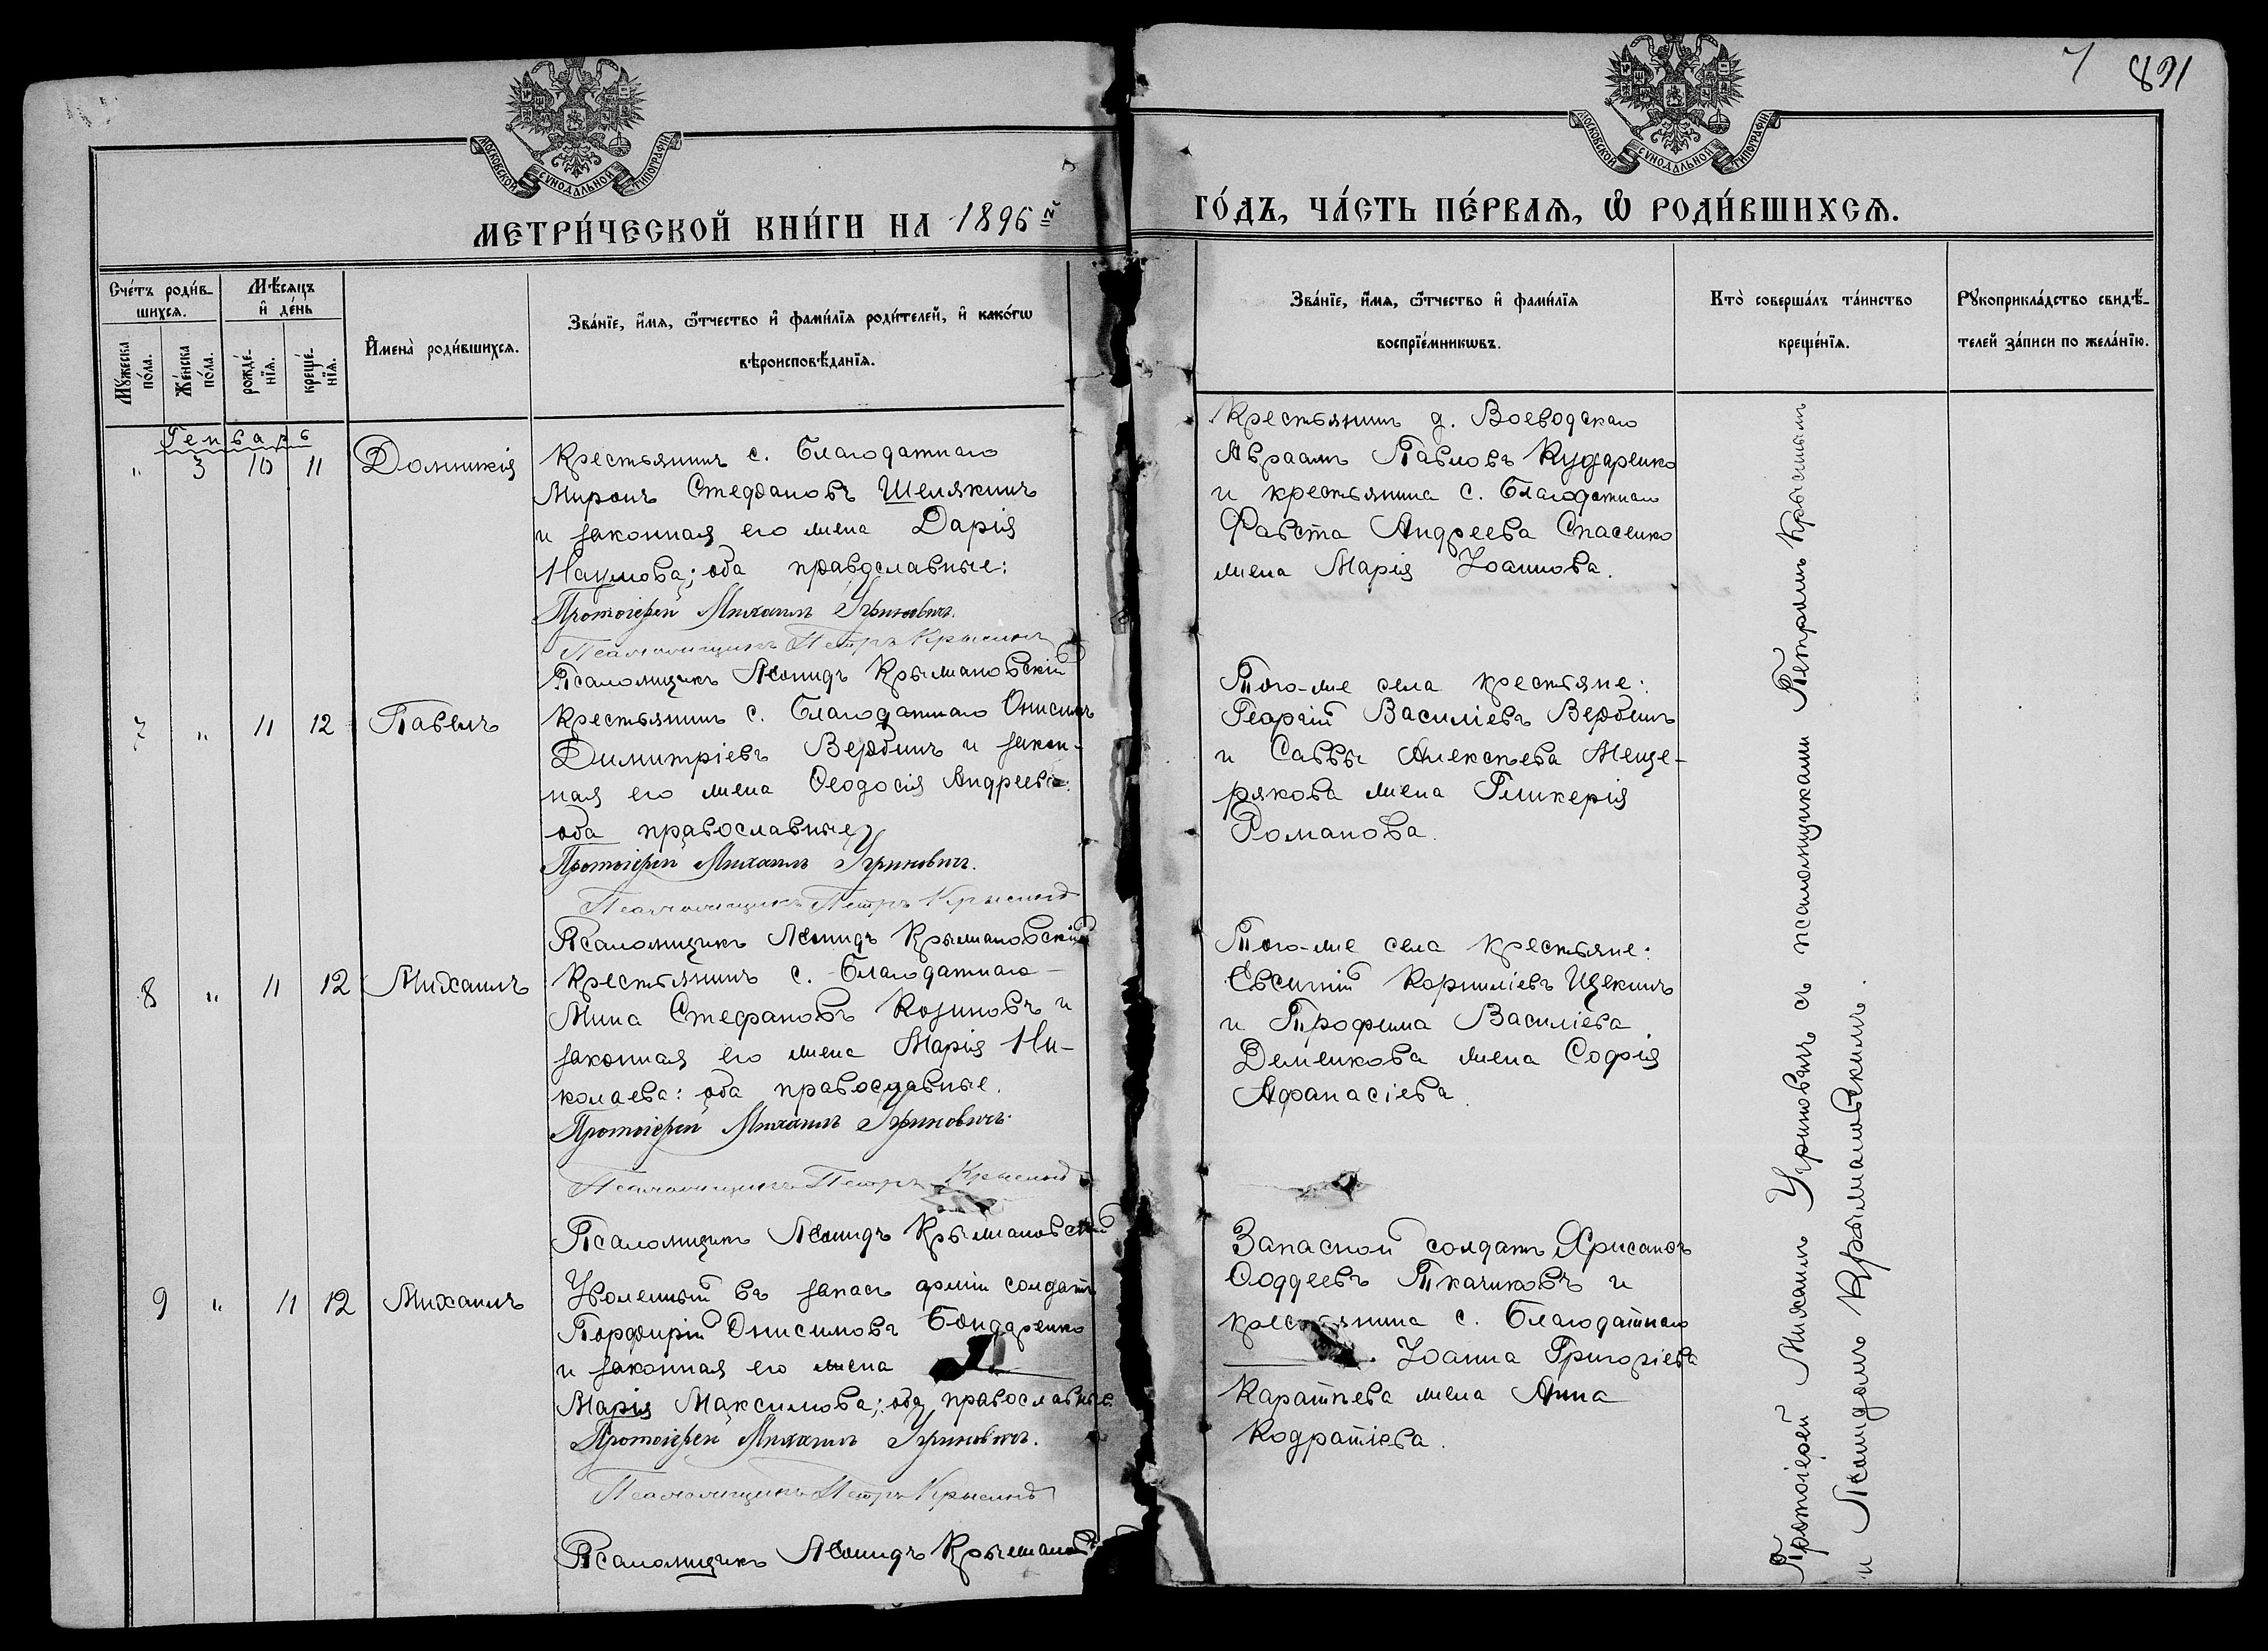 7 891
МОСКОВСКОЙ СѴНОДАЛЬНОЙ ТИПОГРАФІИ
МОСКОВСКОЙ СѴНОДАЛЬНОЙ ТИПОГРАФІИ
МЕТРИ́ЧЕСКОЙ КНИ́ГИ НА 1896 й
ГО́ДЪ, ЧА́СТЬ ПЕ́РВАЯ, Ѽ РОДИ́ВШИХСЯ.
Сче́тъ роди́в-
шихся.
Мѣ́сяцъ
и҆ де́нь
Мꙋ́жеска
по́ла.
Же́нска
по́ла.
рожде́-
нїя.
креще́-
нїя.
И҆мена̀ роди́вшихся.
Зва́нїе, и҆́мя, ѻ҆́тчество и҆ фами́лїя роди́телей, и҆ како́гѡ
вѣроисповѣ́данїя.
Зва́нїе, и҆́мя, ѻ҆́тчество и҆ фами́лїя
воспрїе́мникѡвъ.
Кто̀ соверша́лъ та́инство
креще́нїя.
Рꙋкоприкла́дство свидѣ́-
телей за́писи по жела́нїю.
Генварь
" 3 10 11 Домникія
Крестьянинъ с. Благодатнаго
Миронъ Стефановъ Шелякинъ
и законная его жена Дарія
Наумова; оба православные:
Протоіерей Михаилъ Угриновичъ.
Псаломщикъ Петръ Крысинъ
Псаломщикъ Леонидъ Крыжановскій
Крестьянинъ д. Воеводскаго
Авраамъ Павловъ Кударенко
и крестьянина с. Благодатнаго
Фавста Андреева Спасенко
жена Марія Іоаннова.
7 " 11 12 Павелъ
Крестьянинъ с. Благодатнаго Онисимъ
Димитріевъ Вербинъ и закон-
ная его жена Феодосія Андреева:
оба православные
Протоіерей Михаилъ Угриновичъ.
Псаломщикъ Петръ Крысинъ
Псаломщикъ Леонидъ Крыжановскій
Того-же села крестьяне:
Георгій Василіевъ Вербинъ
и Саввы Алексѣева Меще-
рякова жена Гликерія
Романова.
8 " 11 12 Михаилъ
Крестьянинъ с. Благодатнаго
Мина Стефановъ Козиновъ и
законная его жена Марія Ни-
колаева: оба православные.
Протоіерей Михаилъ Угриновичъ.
Псаломщикъ Петръ Крысинъ
Псаломщикъ Леонидъ Крыжановскій
Того-же села крестьяне:
Евсигній Корниліевъ Щекинъ
и Трофима Василіева
Деменкова жена Софія
Афанасіева.
9 " 11 12 Михаилъ
Уволенный въ запасъ арміи солдатъ
Порфирій Онисимовъ Бондаренко
и законная его жена
Марія Максимова; оба православные.
Протоіерей Михаилъ Угриновичъ.
Псаломщикъ Петръ Крысинъ
Псаломщикъ Леонидъ Крыжанов
Запасной солдатъ Хрисанфъ
Фаддеевъ Ткачиковъ и
крестьянина с. Благодатнаго
Іоанна Григоріева
Каратѣева жена Анна
Кодратіева.
Протоіерей Михаилъ Угриновичъ съ псаломщиками Петромъ Крысинымъ
и Леонидомъ Крыжановскимъ.